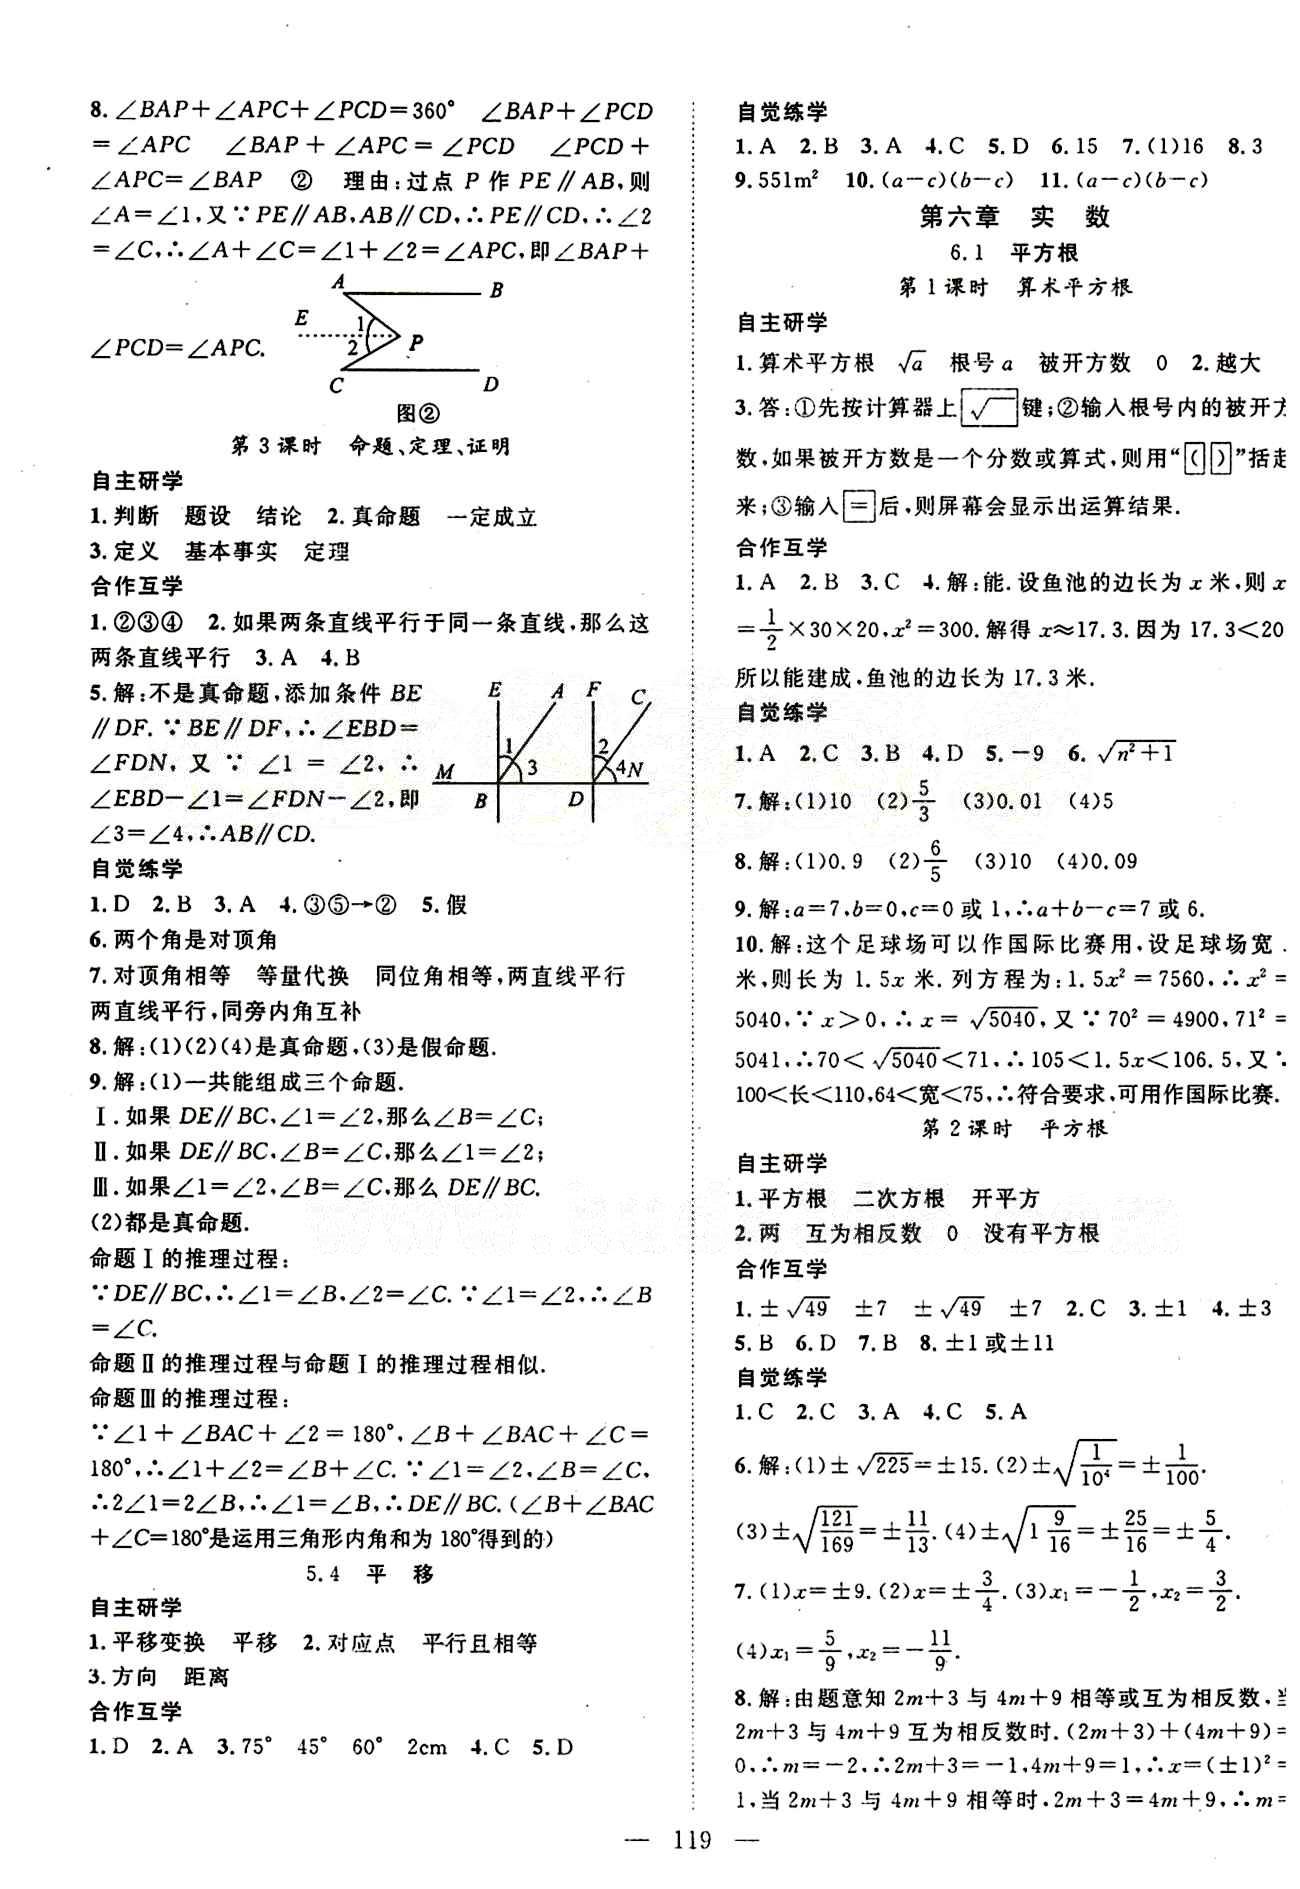 8.∠BAP+∠APC+∠PCD=360° ∠BAP+∠PCD
=∠APC ∠BAP+∠APC=∠PCD ∠PCD+
∠APC=∠BAP ② 理由:过点 P 作 PE∥AB,则
∠A=∠1,又∵PE∥AB,AB∥CD,∴PE∥CD,∴∠2
=∠C,∴∠A+∠C=∠1+∠2=∠APC,即∠BAP+
∠PCD=∠APC.
A B
E 1
2 P
C D
图②
第3课时 命题、定理、证明
自主研学
1.判断 题设 结论 2.真命题 一定成立
3.定义 基本事实 定理
合作互学
1.②③④ 2.如果两条直线平行于同一条直线,那么这
两条直线平行 3.A 4.B
5.解:不是真命题,添加条件 BE
∥DF.∵BE∥DF,∴∠EBD=
∠FDN,又∵∠1=∠2,∴
∠EBD-∠1=∠FDN-∠2,即
∠3=∠4,∴AB∥CD.
E A F C
1 2
M 3 4 N
B D
自觉练学
1.D 2.B 3.A 4.③⑤→② 5.假
6.两个角是对顶角
7.对顶角相等 等量代换 同位角相等,两直线平行
两直线平行,同旁内角互补
8.解:(1)(2)(4)是真命题,(3)是假命题.
9.解:(1)一共能组成三个命题.
Ⅰ.如果 DE∥BC,∠1=∠2,那么∠B=∠C;
Ⅱ.如果 DE∥BC,∠B=∠C,那么∠1=∠2;
Ⅲ.如果∠1=∠2,∠B=∠C,那么 DE∥BC.
(2)都是真命题.
命题Ⅰ的推理过程:
∵DE∥BC,∴∠1=∠B,∠2=∠C.∵∠1=∠2,∴∠B
=∠C.
命题Ⅱ的推理过程与命题Ⅰ的推理过程相似.
命题Ⅲ的推理过程:
∵∠1+∠BAC+∠2=180°,∠B+∠BAC+∠C=
180°,∴∠1+∠2=∠B+∠C.∵∠1=∠2,∠B=∠C,
∴2∠1=2∠B,∴∠1=∠B,∴DE∥BC.(∠B+∠BAC
+∠C=180°是运用三角形内角和为180°得到的)
5.4 平 移
自主研学
1.平移变换 平移 2.对应点 平行且相等
3.方向 距离
合作互学
1.D 2.A 3.75° 45° 60° 2cm 4.C 5.D
自觉练学
1.A 2.B 3.A 4.C 5.D 6.15 7.(1)16 8.3
9.551m² 10.(a-c)(b-c) 11.(a-c)(b-c)
第六章 实 数
6.1 平方根
第1课时 算术平方根
自主研学
1.算术平方根 √a 根号a 被开方数 0 2.越大
3.答:①先按计算器上√键;②输入根号内的被开方
数,如果被开方数是一个分数或算式,则用“()”括起
来;③输入=后,则屏幕会显示出运算结果.
合作互学
1.A 2.B 3.C 4.解:能.设鱼池的边长为 x 米,则 x
=1/2×30×20,x²=300.解得 x≈17.3.因为 17.3<20
所以能建成,鱼池的边长为 17.3 米.
自觉练学
1.A 2.C 3.B 4.D 5.-9 6.√(n²+1)
7.解:(1)10 (2)5/3 (3)0.01 (4)5
8.解:(1)0.9 (2)6/5 (3)10 (4)0.09
9.解:a=7,b=0,c=0 或 1,∴a+b-c=7 或 6.
10.解:这个足球场可以作国际比赛用,设足球场宽
米,则长为 1.5x 米.列方程为:1.5x²=7560,∴x²=
5040,∵x>0,∴x=√5040,又∵70²=4900,71²=
5041,∴70<√5040<71,∴105<1.5x<106.5,又∵
100<长<110,64<宽<75,∴符合要求,可用作国际比赛.
第2课时 平方根
自主研学
1.平方根 二次方根 开平方
2.两 互为相反数 0 没有平方根
合作互学
1.±√49 ±7 ±√49 ±7 2.C 3.±1 4.±3
5.B 6.D 7.B 8.±1或±11
自觉练学
1.C 2.C 3.A 4.C 5.A
6.解:(1)±√225=±15.(2)±√(1/10⁴)=±1/100.
(3)±√(121/169)=±11/13.(4)±√(1 9/16)=±25/16=±5/4.
7.(1)x=±9.(2)x=±3/4.(3)x₁=-1/2,x₂=3/2.
(4)x₁=5/9,x₂=-11/9.
8.解:由题意知 2m+3 与 4m+9 相等或互为相反数,当
2m+3 与 4m+9 互为相反数时.(2m+3)+(4m+9)=
0,∴m=-2,∴2m+3=-1,4m+9=1,∴x=(±1)²=
1,当 2m+3 与 4m+9 相等时,2m+3=4m+9,∴m=
— 119 —